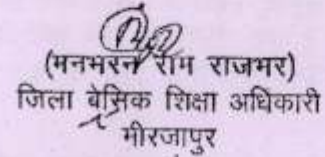 (मनभरन राम राजभर)
जिला बेसिक शिक्षा अधिकारी
मीरजापुर